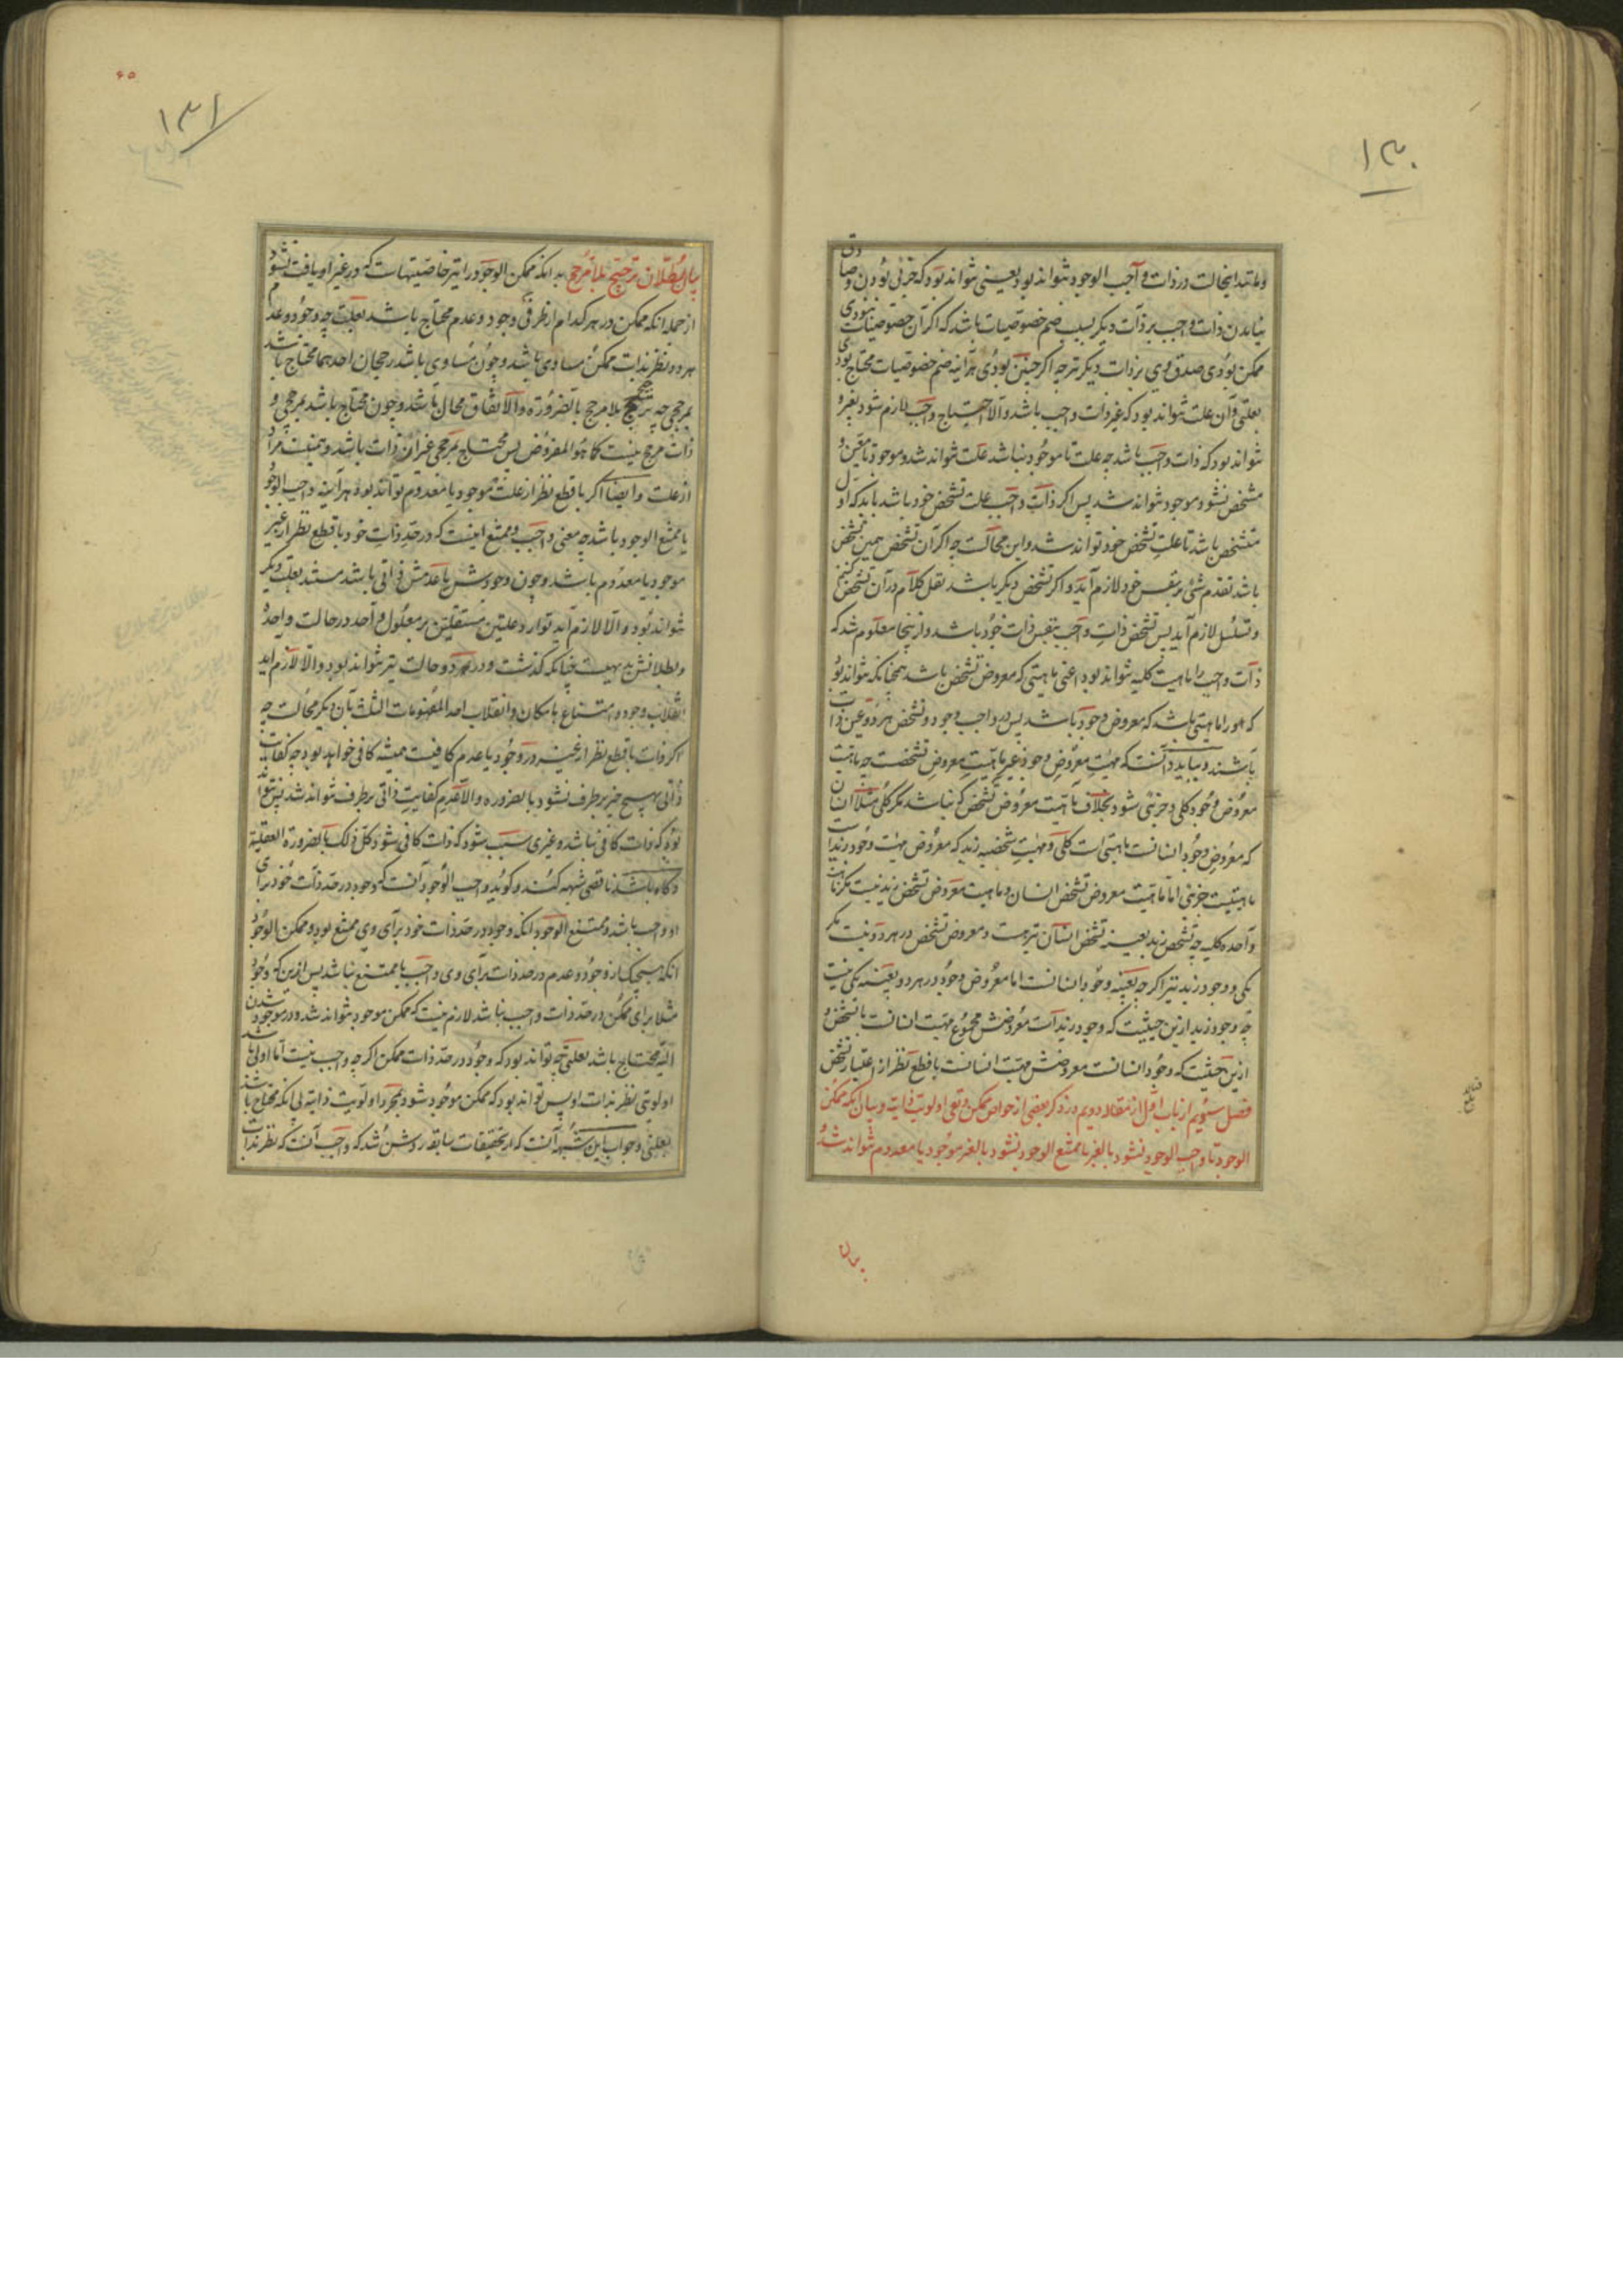 ۱۳۰
و مانند اینحالت در ذات واجب الوجود نتواند بود یعنی نتواند بود که جزئی بودن و صادق
نیامدن ذات واجب بر ذات دیگر بسبب ضم خصوصیات باشد که اگر آن خصوصیات نبودی
ممکن بودی صدق وی بر ذات دیگر چه اگر چنین بودی هر آینه ضم خصوصیات محتاج بودی
بعلتی و آن علت نتواند بود که غیر ذات واجب باشد و الا احتیاج واجب لازم شود بغیر و
نتواند بود که ذات واجب باشد چه علت تا موجود نباشد علت نتواند شد و موجود تا معین و
مشخص نشود موجود نتواند شد پس اگر ذات واجب علت تشخص خود باشد باید که اول
متشخص باشد تا علت تشخص خود تواند شد و این محالست چه اگر آن تشخص همین تشخص
باشد تقدم شئ بر نفس خود لازم آید و اگر تشخص دیگر باشد نقل کلام در آن تشخص کنیم
و تسلسل لازم آید پس تشخص ذات واجب بنفس ذات خود باشد و از ینجا معلوم شد که
ذات واجب را ماهیت کلیه نتواند بود اعنی ماهیتی که معروض تشخص باشد همچنانکه نتواند بود
که او را ماهیتی باشد که معروض وجود باشد پس در واجب وجود و تشخص هر دو عین ذات
باشند و بباید دانست که مهیت معروض وجود غیر ماهیت معروض تشخصست چه ماهیت
معروض وجود کلی و جزئی شود بخلاف ماهیت معروض تشخص که نباشد مگر کلی مثلا انسان
که معروض وجود انسانست ماهیتی است کلی و مهیت شخصیه زید که معروض مهیت وجود زید است
ماهیتیست جزئی اما ماهیت معروض تشخص انسان و ماهیت معروض تشخص زید نیست مگر ماهیت
واحده کلیه چه تشخص زید بعینه تشخص انسان نیز هست و معروض تشخص در هر دو نیست مگر
یکی و وجود زید نیز اگر چه بعینه وجود انسانست اما معروض وجود در هر دو بعینه یکی نیست
چه وجود زید ازین حیثیت که وجود زید است معروضش مجموع مهیت انسانست با تشخص و
ازین حیثیت که وجود انسانست معروضش مهیت انسانست با قطع نظر از اعتبار تشخص
فصل سیوم از باب اول از مقاله دویم در ذکر بعضی از خواص ممکن و نفی اولویت ذاتیه و بیان آنکه ممکن
الوجود تا واجب الوجود نشود بالغیر یا ممتنع الوجود نشود بالغیر موجود یا معدوم نتواند شد
بیان
۶۵
۱۳۱
بیان بطلان ترجیح بلا مرجح بدانکه ممکن الوجود را نیز خاصیتهاست که در غیر او یافت نشود
از جمله آنکه ممکن در هر کدام از طرفی وجود و عدم محتاج باشد بعلت چه وجود و عدم
هر دو نظر بذات ممکن مساوی باشد و چون مساوی باشد رجحان احدهما محتاج باشد
بمرجحی چه ترجیح بلا مرجح بالضروره و الاتفاق محال باشد و چون محتاج باشد بمرجحی و
ذات مرجح نیست کما هو المفروض پس محتاج بمرجحی غیر از ذات باشد و همینست مراد
از علت و ایضا اگر با قطع نظر از علت موجود یا معدوم تواند بود هر آینه واجب الوجود
یا ممتنع الوجود باشد چه معنی واجب و ممتنع اینست که در حد ذات خود با قطع نظر از غیر
موجود یا معدوم باشد و چون وجودش یا عدمش ذاتی باشد مستند بعلت دیگر
نتواند بود و الا لازم آید توارد علتین مستقلتین بر معلول واحد در حالت واحده
و بطلانش بدیهیست چنانکه گذشت و در دو حالت نیز نتواند بود و الا لازم آید
انقلاب وجود و امتناع بامکان و انقلاب احد المفهومات الثلث بآن دیگر محالست چه
اگر ذات با قطع نظر از غیر در وجود یا عدم کافیست همیشه کافی خواهد بود چه کفایت
ذاتی بهیچ چیز برطرف نشود بالضروره و الا عدم کفایت ذاتی برطرف نتواند شد پس نتواند
بود که ذات کافی نباشد و غیری سبب شود که ذات کافی شود کل ذلک بالضرورة العقلیة
و گاه باشد ناقصی شبهه کند و گوید واجب الوجود آنست که وجود در حد ذات خود برای
او واجب باشد و ممتنع الوجود آنکه وجود در حد ذات خود برای وی ممتنع بود و ممکن الوجود
آنکه هیچیک از وجود و عدم در حد ذات برای وی واجب یا ممتنع نباشد پس ازین که وجود
مثلا برای ممکن در حد ذات واجب نباشد لازم نیست که ممکن موجود نتواند شد و در موجود شدن
البته محتاج باشد بعلتی چه تواند بود که وجود در حد ذات ممکن اگر چه واجب نیست اما اولی باشد
اولویتی نظر بذات او پس تواند بود که ممکن موجود شود بمجرد اولویت ذاتیه بی آنکه محتاج باشد
بعلتی و جواب این شبهه آنست که از تحقیقات سابقه روشن شد که واجب آنست که نظر بذات